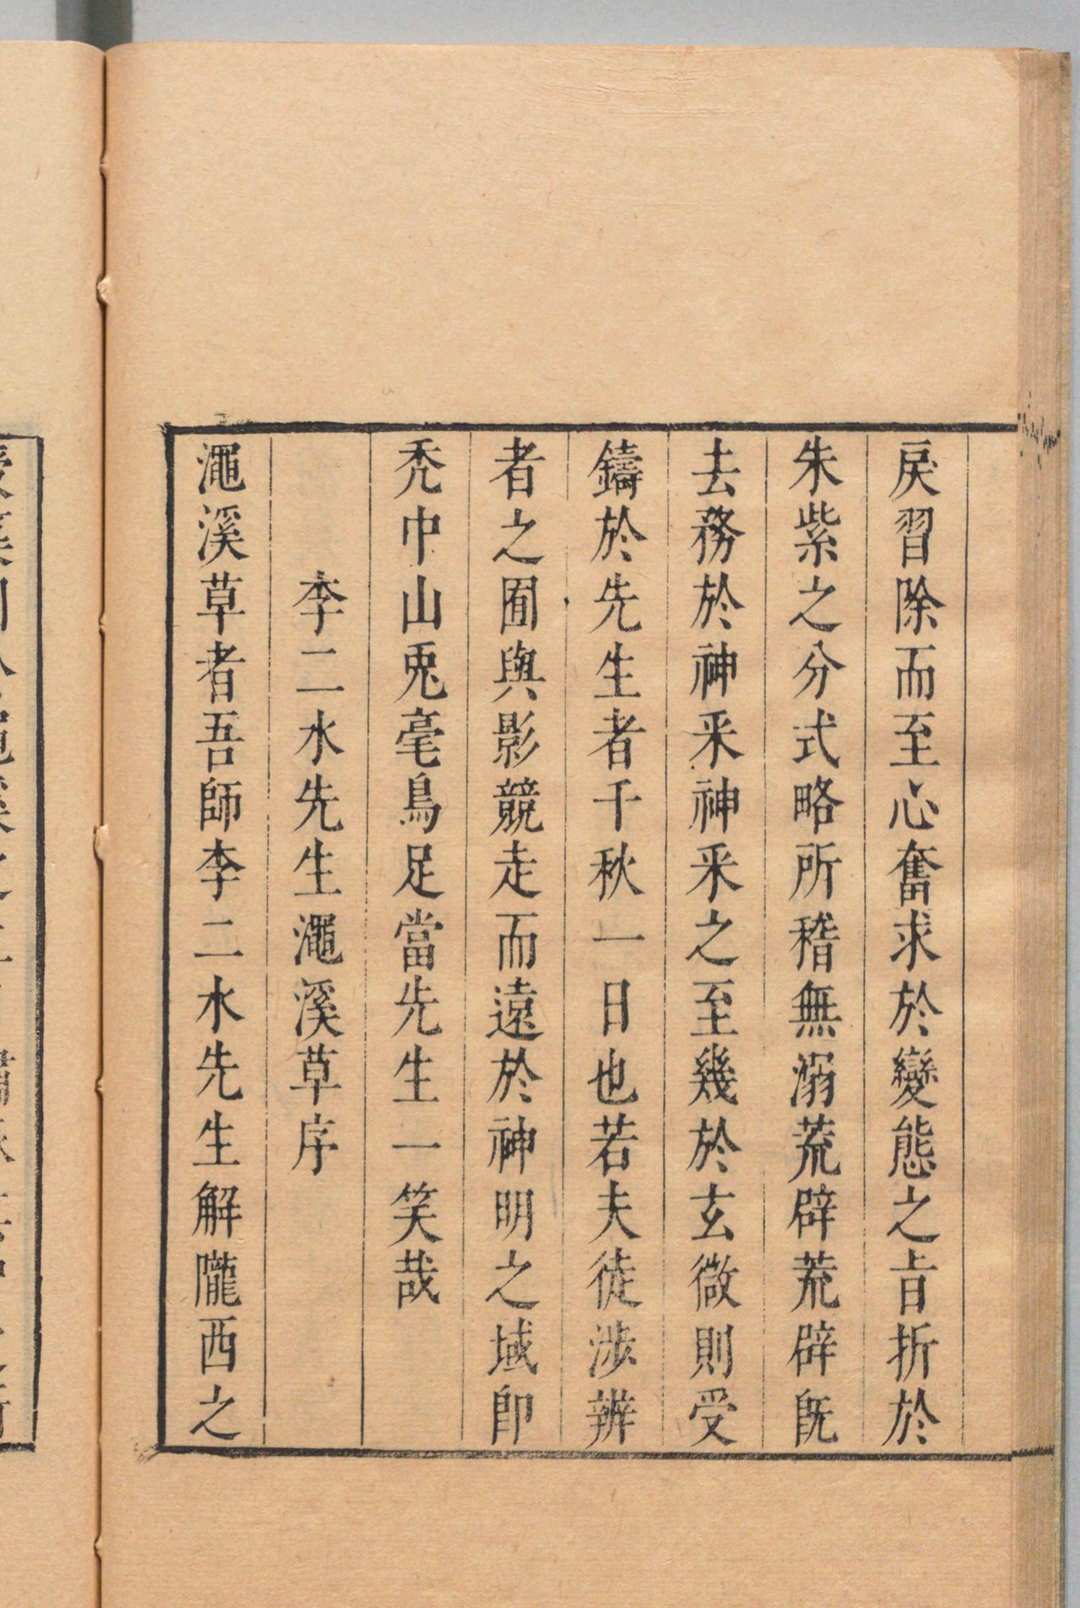 戾習除而至心奮求於變態之旨折於
朱紫之分式略所稽無溺荒辟荒辟旣
去務於神采神采之至幾於玄微則受
鑄於先生者千秋一日也若夫徒涉辨
者之囿與影競走而遠於神明之域卽
禿中山兎毫鳥足當先生一笑哉
李二水先生澠溪草序
澠溪草者吾師李二水先生解隴西之